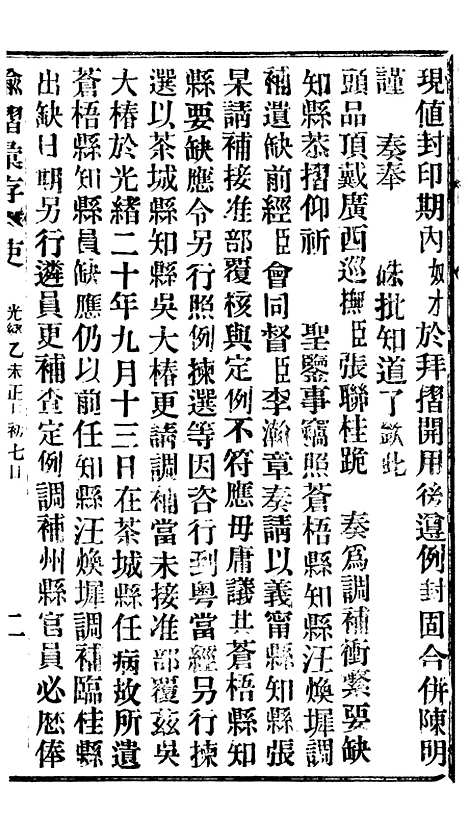 現值封印期內奴才於拜摺開用後遵例封固合併陳明
謹　奏奉　硃批知道了欽此
頭品頂戴廣西巡撫臣張聯桂跪　奏爲調補衝繁要缺
知縣恭摺仰祈　聖鑒事竊照蒼梧縣知縣汪煥墀調
補遺缺前經臣會同督臣李瀚章奏請以義甯縣知縣張
杲請補接准部覆核與定例不符應毋庸議其蒼梧縣知
縣要缺應令另行照例揀選等因咨行到粤當經另行揀
選以茶城縣知縣吳大椿更請調補當未接准部覆茲吳
大椿於光緒二十年九月十三日在茶城縣任病故所遺
蒼梧縣知縣員缺應仍以前任知縣汪煥墀調補臨桂縣
出缺日期另行遴員更補查定例調補州縣官員必歷俸
諭摺彙存　光緒乙未正月初七日　二